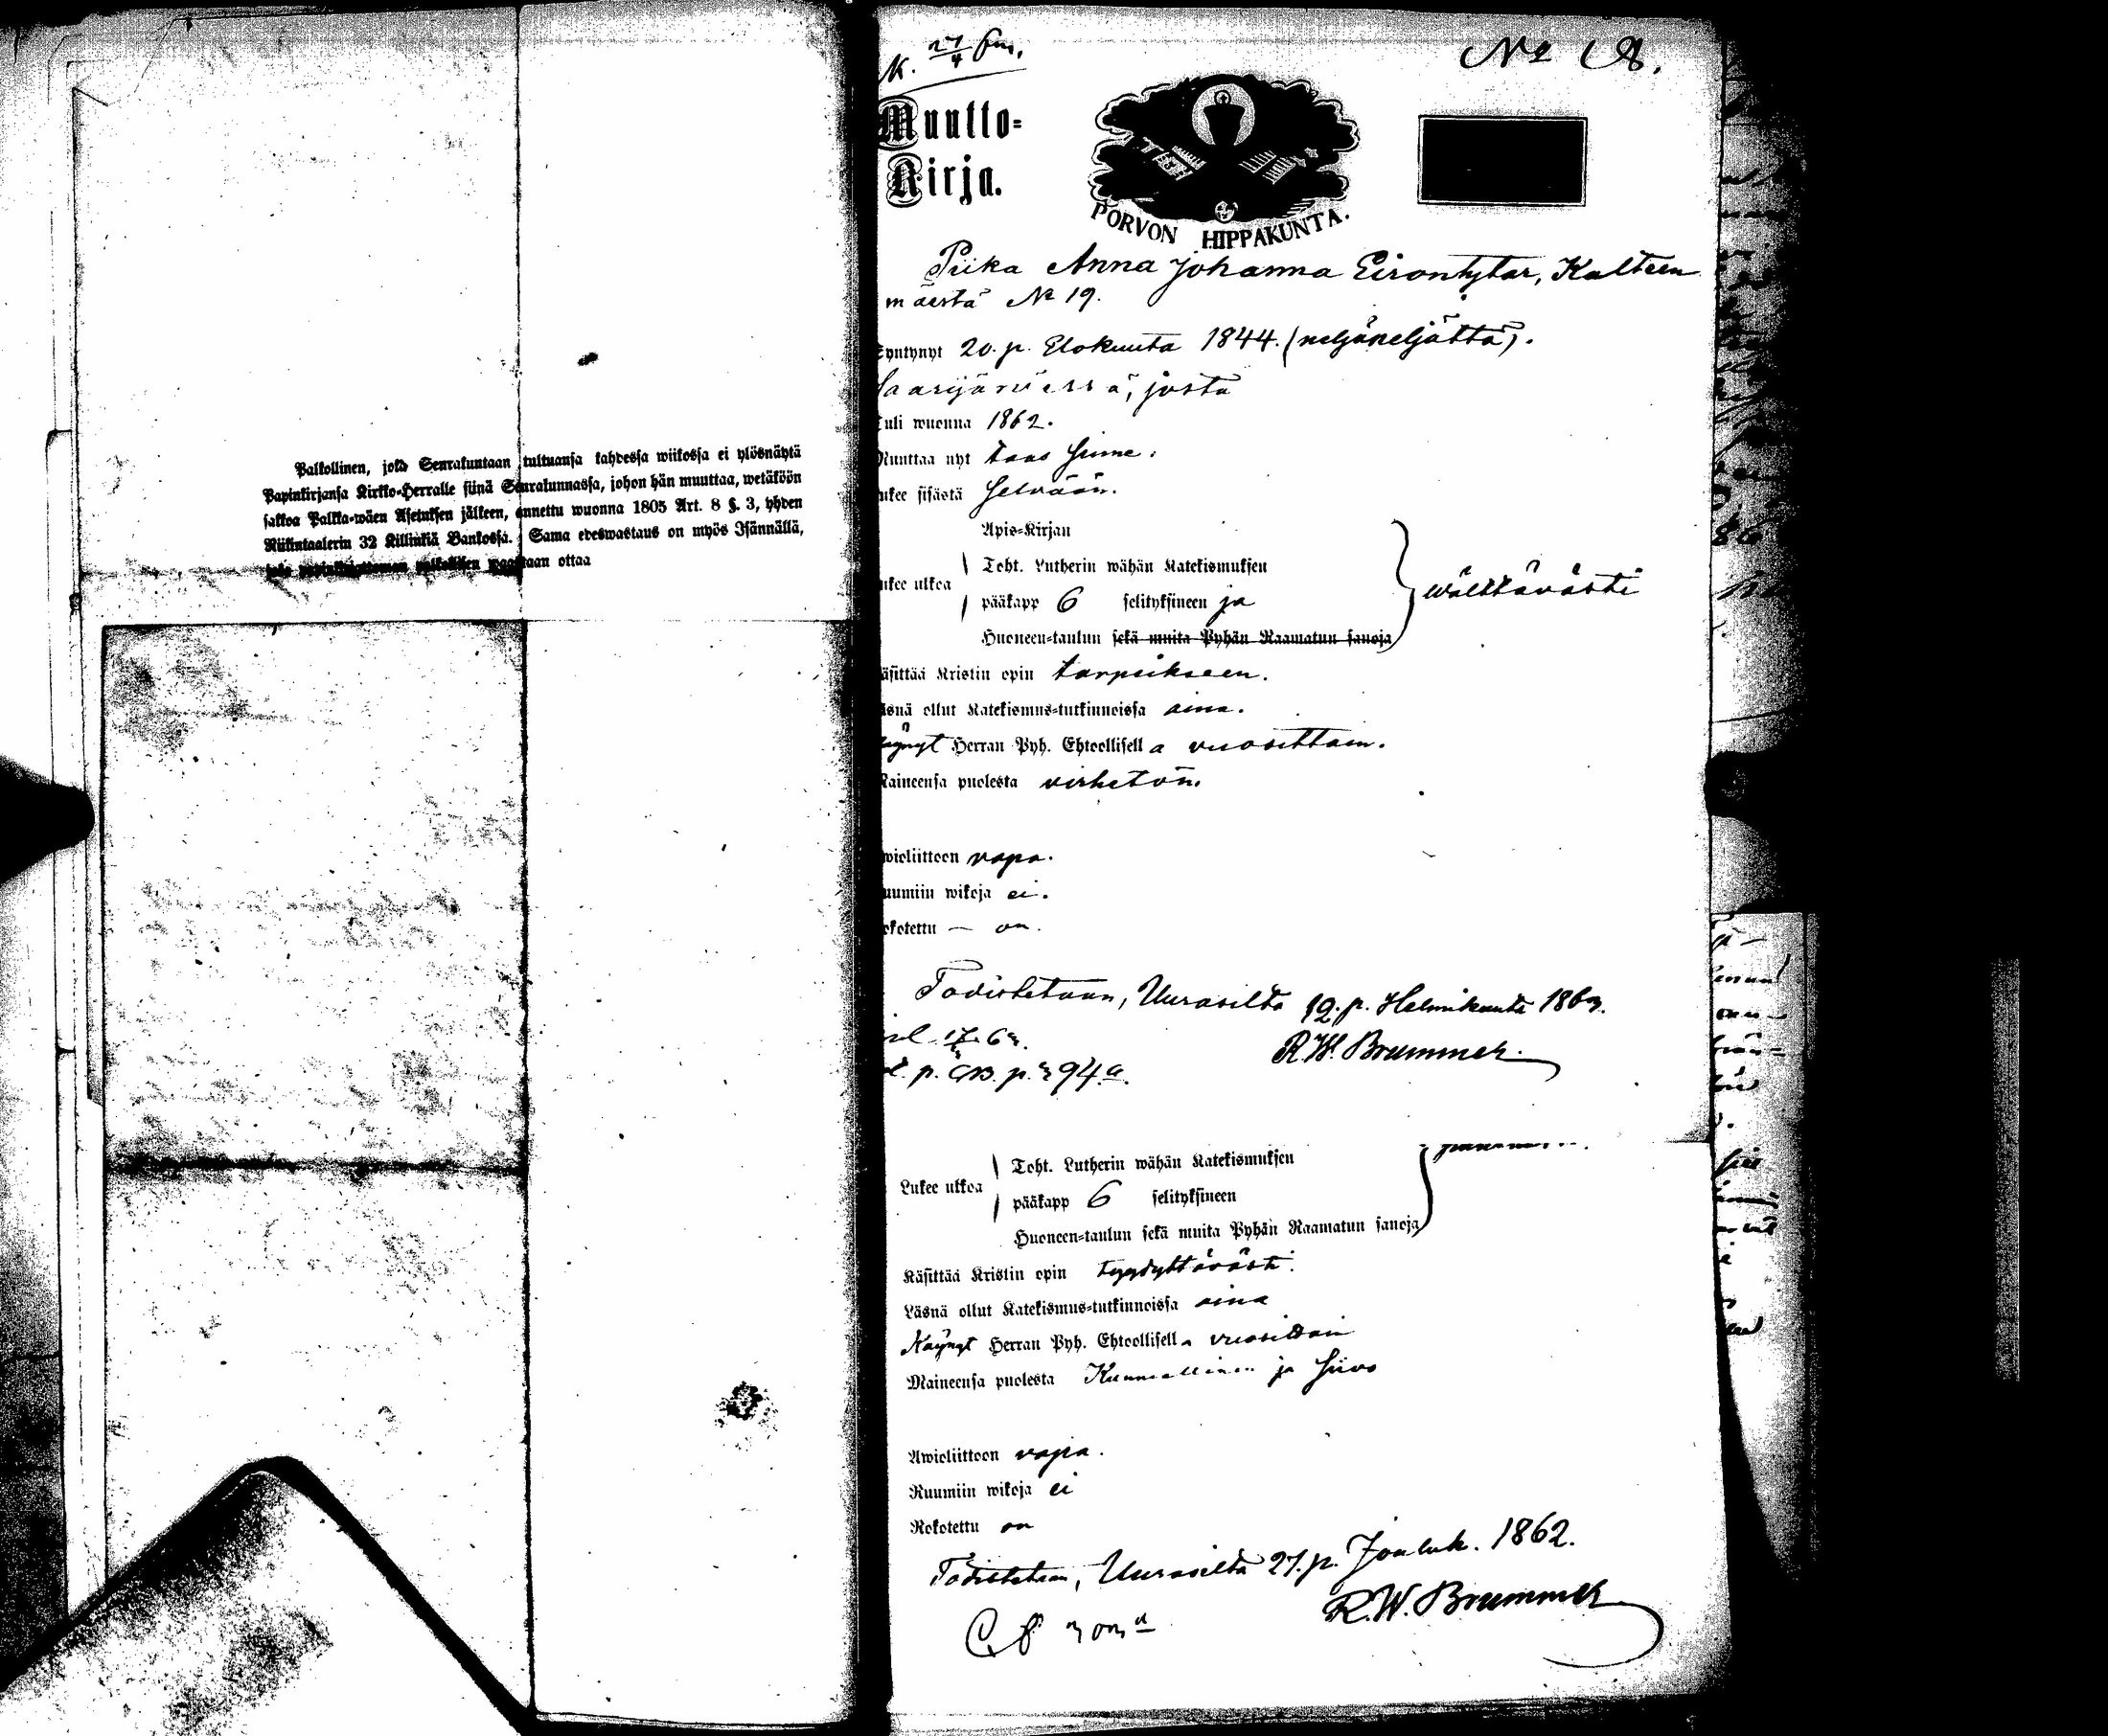 Palkollinen, joka Seurakuntaan tultuansa kahdessa wiikossa ei ylösnäytä
Papinkirjansa Kirkko-Herralle siinä Seurakunnassa, johon hän muuttaa, wetäköön
sakkoa Palkka-wäen Asetuksen jälkeen, annettu wuonna 1805 Art. 8 §. 3, yhden
Riikintaalerin 32 Killinkiä Bankossa. Sama edeswastaus on myös Isännällä,
ottaa
No 18.
Muutto-
Kirja.
PORVON HIPPAKUNTA.
Piika Anna Johanna Eirontytar, Kalteen
mäestä No 19.
Syntynyt 20. p. Elokuuta 1844. (neljäneljättä).
Saarijärvessä, josta
Tuli wuonna 1862.
Muuttaa nyt taas sinne.
Lukee sisästä selvään.
Apis-Kirjan
Lukee ulkoa
Toht. Lutherin wähän Katekismuksen
pääkapp 6 selityksineen ja
Huoneen-taulun sekä muita Pyhän Raamatun sanoja
wälttävästi
Käsittää Kristin opin tarpeikseen.
Läsnä ollut Katekismus-tutkinnoissa aina.
Käynyt Herran Pyh. Ehtoollisella vuosittain.
Maineensa puolesta virhetön.
Awioliittoon vapa.
Ruumiin wikoja ei.
Rokotettu — on.
Todistetaan, Uuraisilta 12. p. Helmikuuta 1863.
R. W. Brummer.
p. CB. p. 394 a.
Lukee ulkoa
Toht. Lutherin wähän Katekismuksen
pääkapp 6 selityksineen
Huoneen-taulun sekä muita Pyhän Raamatun sanoja
Käsittää Kristin opin tyydyttävästi.
Läsnä ollut Katekismus-tutkinnoissa aina
Käynyt Herran Pyh. Ehtoollisella vuosittain
Maineensa puolesta Kunniallinen ja siivo
Awioliittoon vapa.
Ruumiin wikoja ei
Rokotettu on
Todistetaan, Uuraisilta 27. p. Jouluk. 1862.
R. W. Brummer